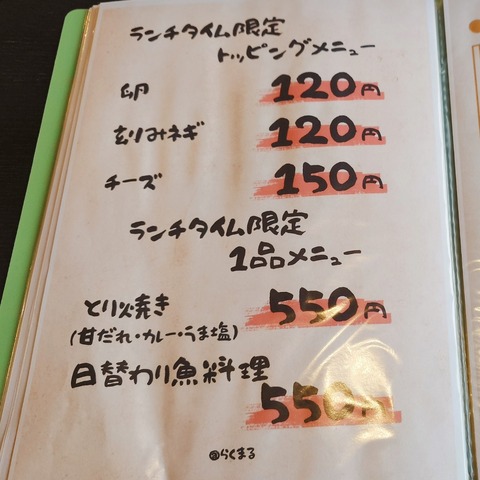 ランチタイム限定
トッピングメニュー
卵 120円
刻みネギ 120円
チーズ 150円
ランチタイム限定
1品メニュー
とり焼き 550円
(甘だれ・カレー・うま塩)
日替わり魚料理
550円
@らくまる